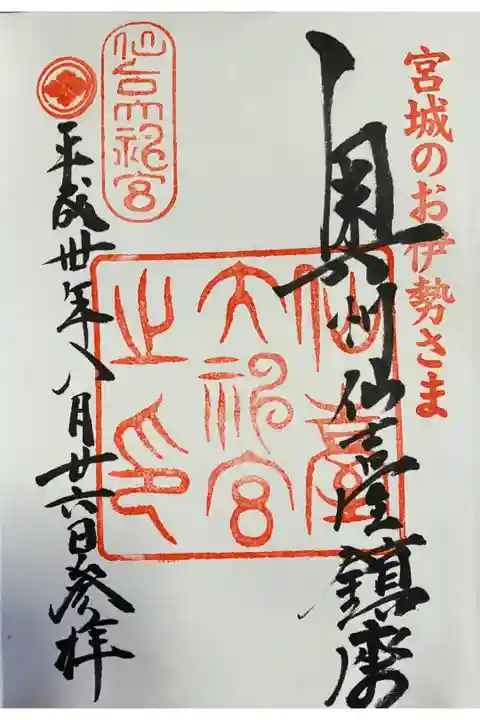 宮城のお伊勢さま
奥州仙臺鎮座
仙臺
大神宮
之印
仙台大神宮
平成卅年八月廿六日参拝